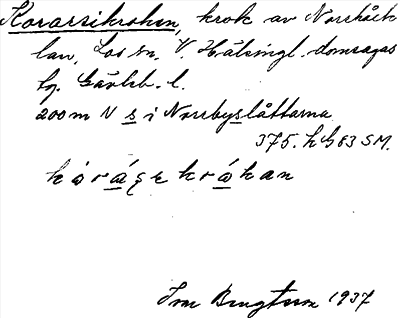 Korarsikroken, krok av Norrhäck
lan, Los sn. V. Hälsingl. domsagas
tg. Gävleb. l.
200 m N s i Norrbyslåttarna.
375. h G 83 SM.
kòrásekrókan
Bengtsson 1937